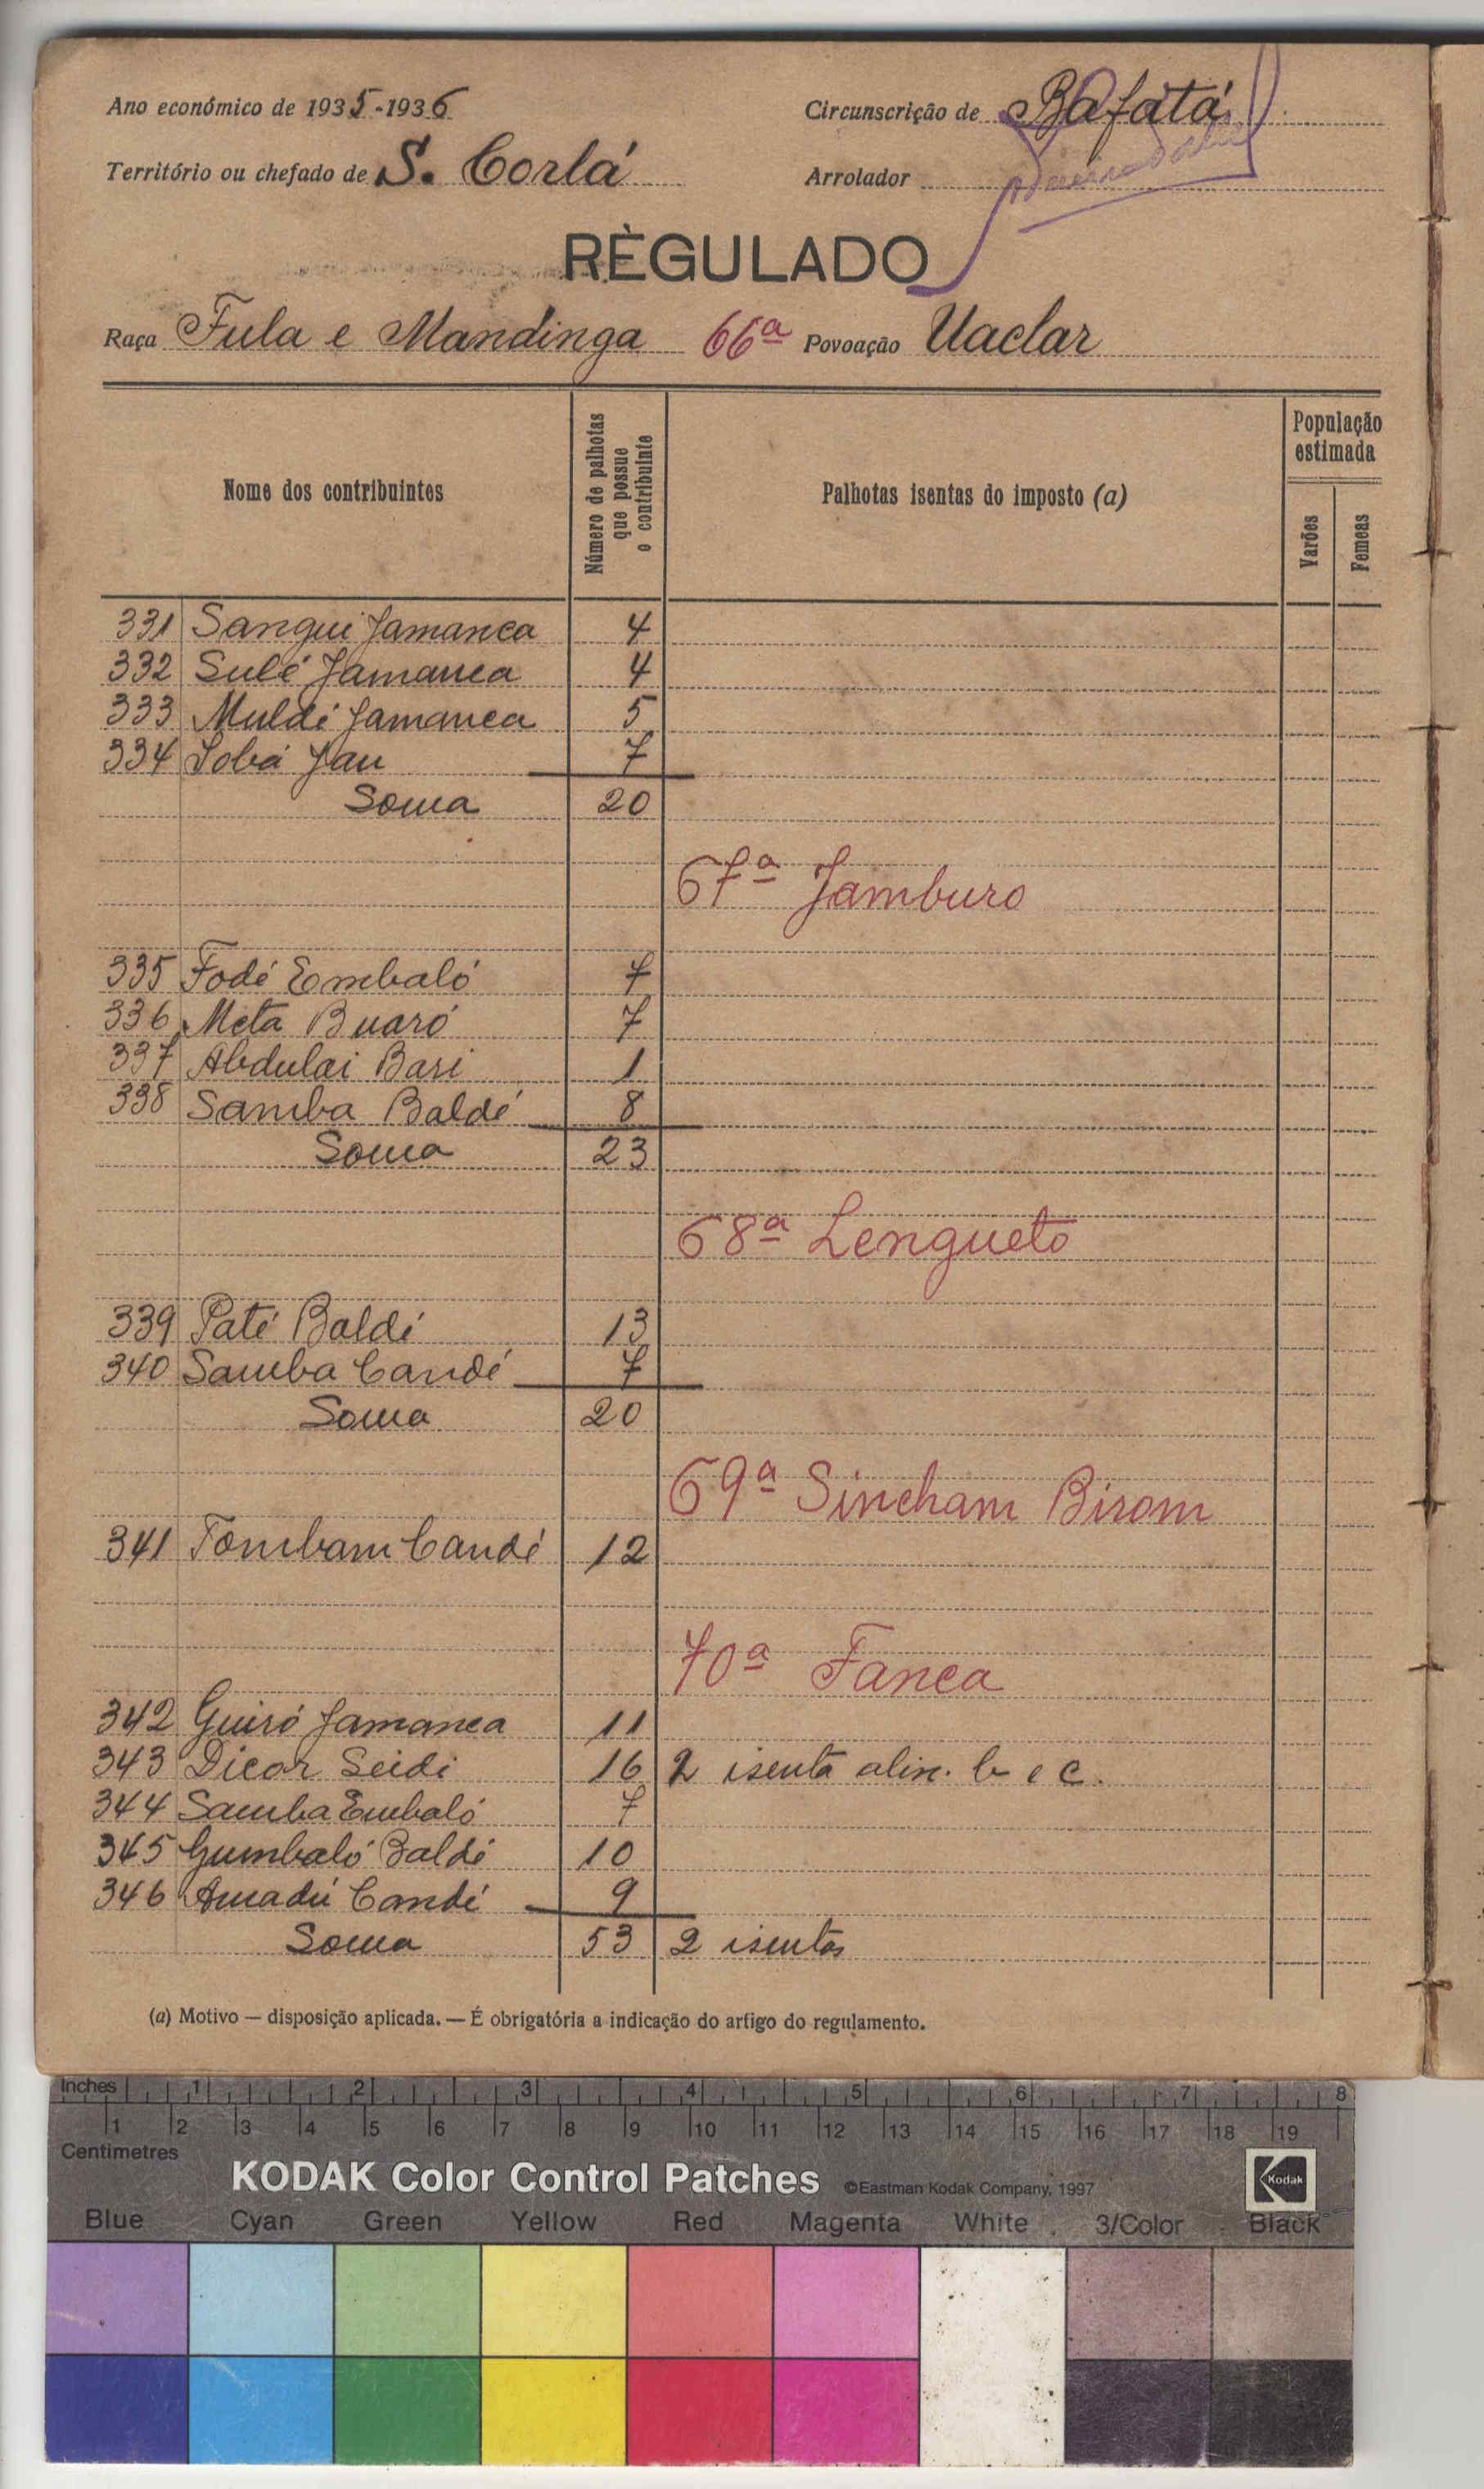 Ano económico de 1935-1936
Circunscrição de Bafatá
Território ou chefado de S. Corlá
Arrolador
RÈGULADO
Raça Fula e Mandinga 66ª Povoação Uaclar
Nome dos contribuintes
Número de palhotas que possue o contribuinte
Palhotas isentas do imposto (a)
População estimada
Varões
Femeas
331 Sangui Jamanca 4
332 Sulé Jamanca 4
333 Muldé Jamanca 5
334 Jobá Jau 7
Soma 20
67ª Jamburo
335 Fodé Embaló 7
336 Meta Buaró 7
337 Abdulai Bari 1
338 Samba Baldé 8
Soma 23
68ª Lengueto
339 Paté Baldé 13
340 Samba Candé 7
Soma 20
69ª Sincham Birom
341 Tombam Candé 12
70ª Fanca
342 Guiró Jamanca 11
343 Dicor Seidi 16 2 isenta alin. b e c.
344 Samba Embaló 7
345 Gumbaló Baldé 10
346 Amadú Candé 9
Soma 53 2 isentas
(a) Motivo — disposição aplicada. — É obrigatória a indicação do artigo do regulamento.
Inches 1 2 3 4 5 6 7 8
1 2 3 4 5 6 7 8 9 10 11 12 13 14 15 16 17 18 19
Centimetres
KODAK Color Control Patches ©Eastman Kodak Company, 1997 Kodak
Blue Cyan Green Yellow Red Magenta White 3/Color Black